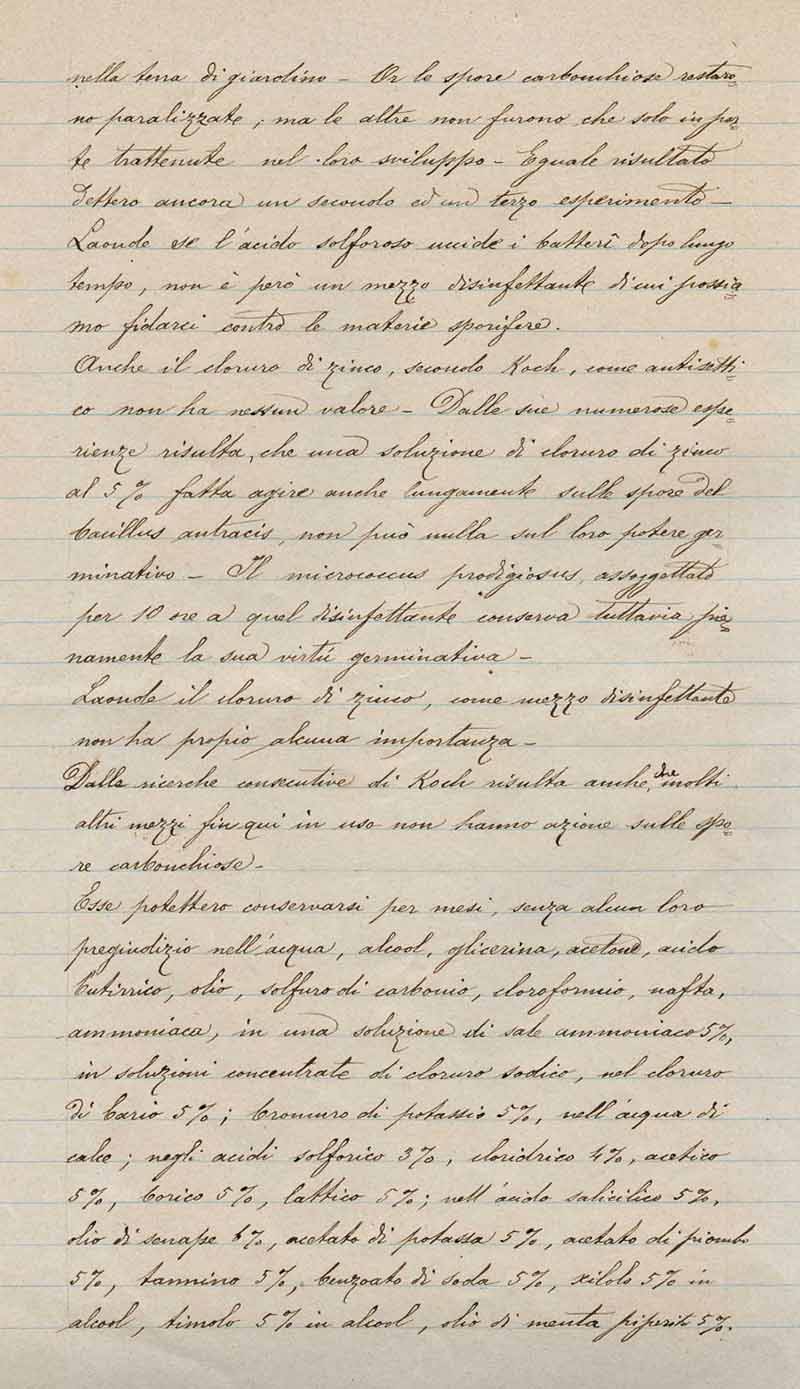 nella terra di giardino - Or le spore carbonchiose restaro
no paralizzate; ma le altre non furono che solo in par
te trattenute nel loro sviluppo - Eguale risultato
dettero ancora un secondo ed un terzo esperimento -
Laonde se l'acido solforoso uccide i batterî dopo lungo
tempo, non è però un mezzo disinfettante di cui possia
mo fidarci contro le materie sporifere.
Anche il cloruro di zinco, secondo Koch, come antisetti
co non ha nessun valore - Dalle sue numerose espe
rienze risulta, che una soluzione di cloruro di zinco
al 5% fatta agire anche lungamente sulle spore del
bacillus antracis, non può nulla sul loro potere ger
minativo - Il micrococcus prodigiosus, assoggettato
per 10 ore a quel disinfettante conserva tuttavia pie
namente la sua virtú germinativa -
Laonde il cloruro di zinco, come mezzo disinfettante
non ha propio alcuna importanza -
Dalle ricerche consecutive di Koch risulta anche, che molti
altri mezzi fin qui in uso non hanno azione sulle spo
re carbonchiose -
Esse potettero conservarsi per mesi, senza alcun loro
pregiudizio nell'acqua, alcool, glicerina, acetone, acido
butirrico, olio, solfuro di carbonio, cloroformio, nafta,
ammoniaca, in una soluzione di sale ammoniaco 5%,
in soluzioni concentrate di cloruro sodico, nel cloruro
di bario 5%; bromuro di potassio 5%, nell'acqua di
calce; negli acidi solforico 3%, cloridrico 4%, acetico
5%, borico 5%, lattico 5%; nell'acido salicilico 5%,
olio di senape 6%, acetato di potassa 5%, acetato di piombo
5%, tannino 5%, benzoato di soda 5%, xilolo 5% in
alcool, timolo 5% in alcool, olio di menta piperiti 5%.